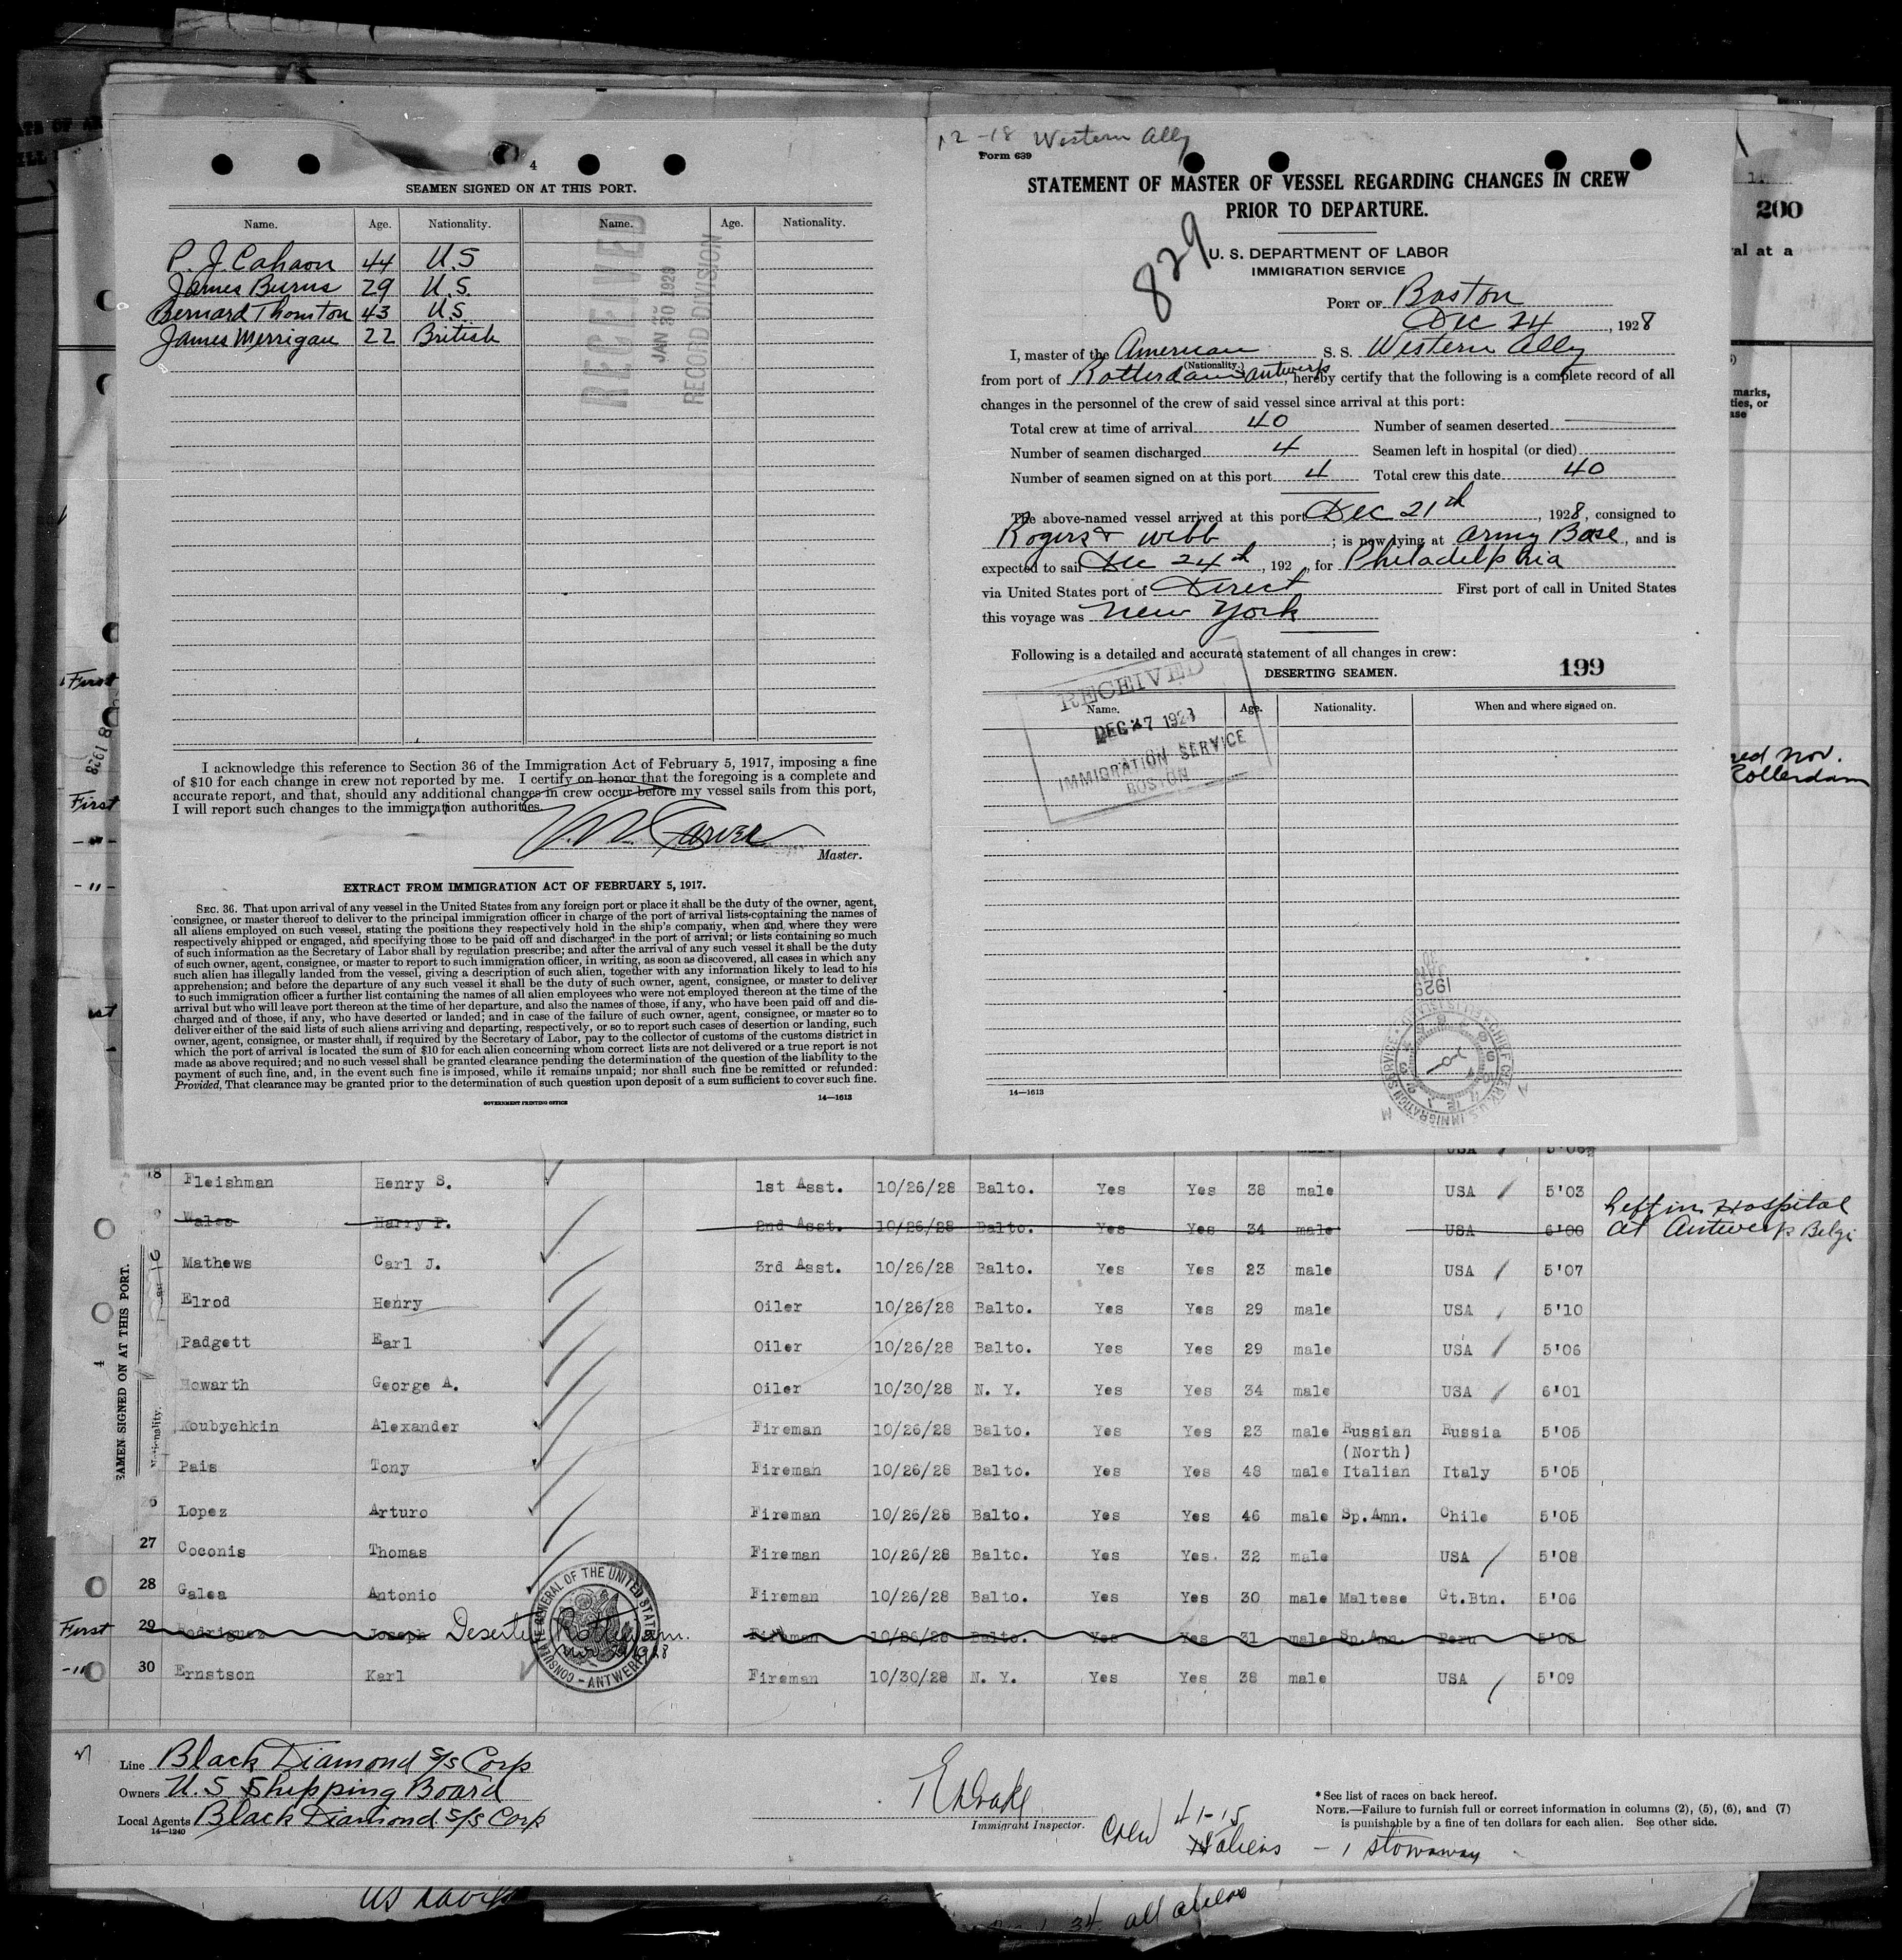 4
SEAMEN SIGNED ON AT THIS PORT.
Name. Age. Nationality. Name. Age. Nationality.
P. J. Cahaon 44 U.S
James Burns 29 U.S.
Bernard Thornton 43 U.S.
James Merrigan 22 British
RECEIVED
JAN 30 1929
RECORD DIVISION
I acknowledge this reference to Section 36 of the Immigration Act of February 5, 1917, imposing a fine
of $10 for each change in crew not reported by me. I certify on honor that the foregoing is a complete and
accurate report, and that, should any additional changes in crew occur before my vessel sails from this port,
I will report such changes to the immigration authorities.
Master.
EXTRACT FROM IMMIGRATION ACT OF FEBRUARY 5, 1917.
SEC. 36. That upon arrival of any vessel in the United States from any foreign port or place it shall be the duty of the owner, agent,
consignee, or master thereof to deliver to the principal immigration officer in charge of the port of arrival lists containing the names of
all aliens employed on such vessel, stating the positions they respectively hold in the ship's company, when and where they were
respectively shipped or engaged, and specifying those to be paid off and discharged in the port of arrival; or lists containing so much
of such information as the Secretary of Labor shall by regulation prescribe; and after the arrival of any such vessel it shall be the duty
of such owner, agent, consignee, or master to report to such immigration officer, in writing, as soon as discovered, all cases in which any
such alien has illegally landed from the vessel, giving a description of such alien, together with any information likely to lead to his
apprehension; and before the departure of any such vessel it shall be the duty of such owner, agent, consignee, or master to deliver
to such immigration officer a further list containing the names of all alien employees who were not employed thereon at the time of the
arrival but who will leave port thereon at the time of her departure, and also the names of those, if any, who have been paid off and dis-
charged and of those, if any, who have deserted or landed; and in case of the failure of such owner, agent, consignee, or master so to
deliver either of the said lists of such aliens arriving and departing, respectively, or so to report such cases of desertion or landing, such
owner, agent, consignee, or master shall, if required by the Secretary of Labor, pay to the collector of customs of the customs district in
which the port of arrival is located the sum of $10 for each alien concerning whom correct lists are not delivered or a true report is not
made as above required; and no such vessel shall be granted clearance pending the determination of the question of the liability to the
payment of such fine, and, in the event such fine is imposed, while it remains unpaid; nor shall such fine be remitted or refunded:
Provided, That clearance may be granted prior to the determination of such question upon deposit of a sum sufficient to cover such fine.
GOVERNMENT PRINTING OFFICE 14—1613
12-18 Western Ally
Form 639
STATEMENT OF MASTER OF VESSEL REGARDING CHANGES IN CREW
PRIOR TO DEPARTURE.
829
U. S. DEPARTMENT OF LABOR
IMMIGRATION SERVICE
PORT OF Boston
Dec 24, 1928
I, master of the American S. S. Western Ally
(Nationality.)
from port of Rotterdam Antwerp, hereby certify that the following is a complete record of all
changes in the personnel of the crew of said vessel since arrival at this port:
Total crew at time of arrival 40 Number of seamen deserted
Number of seamen discharged 4 Seamen left in hospital (or died)
Number of seamen signed on at this port 4 Total crew this date 40
The above-named vessel arrived at this port Dec 21th, 1928, consigned to
Rogers & Webb; is now lying at Army Base, and is
expected to sail Dec 24th, 192 , for Philadelphia
via United States port of Direct First port of call in United States
this voyage was New York
Following is a detailed and accurate statement of all changes in crew:
DESERTING SEAMEN. 199
Name. Age. Nationality. When and where signed on.
RECEIVED
DEC 27 1928
IMMIGRATION SERVICE
BOSTON
14—1613
200
val at a
marks,
ties, or
First
First
-"-
-"-
8 1928
red Nov.
Rotterdam
4
SEAMEN SIGNED ON AT THIS PORT.
Nationality.
18 Fleishman Henry S. 1st Asst. 10/26/28 Balto. Yes Yes 38 male USA 5'03
Wales Harry P. 2nd Asst. 10/26/28 Balto. Yes Yes 34 male USA 6'00 Left in Hospital
at Antwerp Belgi
Mathews Carl J. 3rd Asst. 10/26/28 Balto. Yes Yes 23 male USA 5'07
Elrod Henry Oiler 10/26/28 Balto. Yes Yes 29 male USA 5'10
Padgett Earl Oiler 10/26/28 Balto. Yes Yes 29 male USA 5'06
Howarth George A. Oiler 10/30/28 N. Y. Yes Yes 34 male USA 6'01
Koubychkin Alexander Fireman 10/26/28 Balto. Yes Yes 23 male Russian Russia 5'05
(North)
Pais Tony Fireman 10/26/28 Balto. Yes Yes 48 male Italian Italy 5'05
26 Lopez Arturo Fireman 10/26/28 Balto. Yes Yes 46 male Sp.Amn. Chile 5'05
27 Coconis Thomas Fireman 10/26/28 Balto. Yes Yes. 32 male USA 5'08
28 Galea Antonio Fireman 10/26/28 Balto. Yes Yes 30 male Maltese Gt.Btn. 5'06
First 29 Rodriguez Joseph Deserted Rotterdam. Fireman 10/26/28 Balto. Yes Yes 31 male Sp.Amn. Peru 5'05
-"- 30 Ernstson Karl Fireman 10/30/28 N. Y. Yes Yes 38 male USA 5'09
Line Black Diamond S/S Corp
Owners U.S Shipping Board
Local Agents Black Diamond S/S Corp
14—1240
Immigrant Inspector.
Crew 41-15
aliens - 1 stowaway
* See list of races on back hereof.
NOTE.—Failure to furnish full or correct information in columns (2), (5), (6), and (7)
is punishable by a fine of ten dollars for each alien. See other side.
34 all aliens